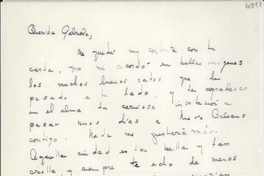 Querida Gabriela,
Me quedé muy contenta con tu
carta, que me acordó en bellas imágenes
los muchos buenos ratos que he
pasado a tu lado, y te agradezco
en el alma tu cariñosa invitación a
pasar unos días a Nueva Orleans
contigo. Nada me gustaría más.
Aquella ciudad es tan bella y tan
y siempre te echo de menos